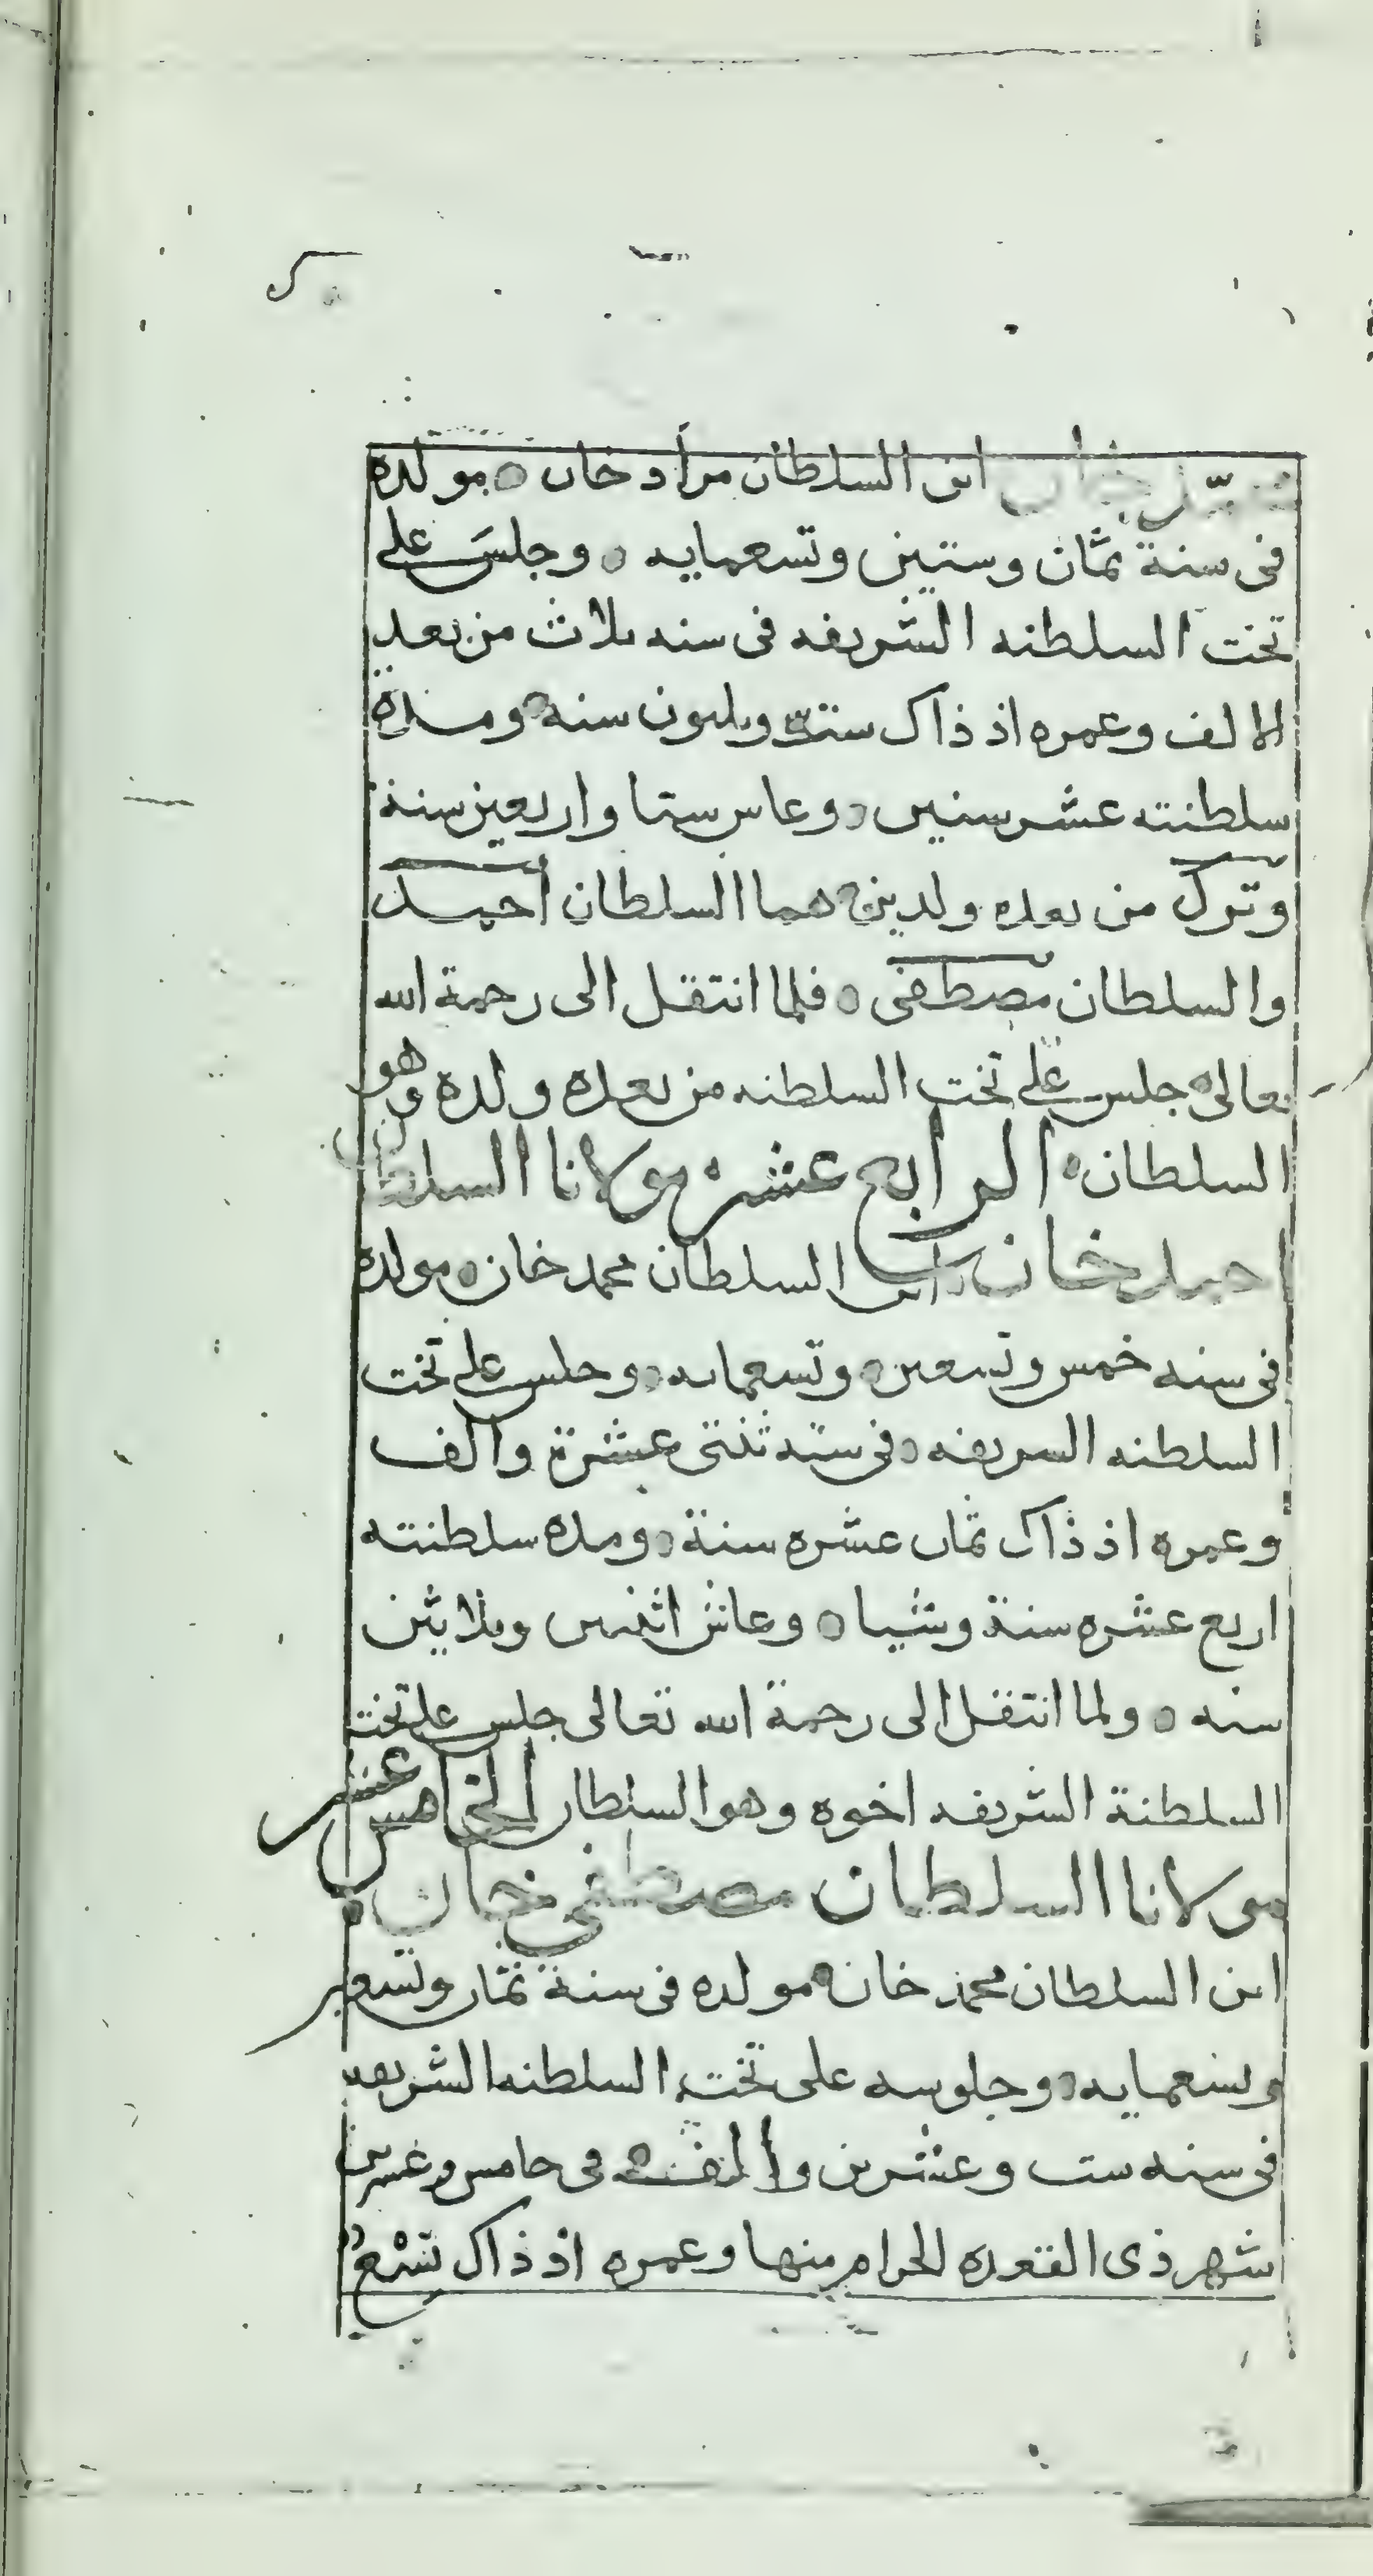 محمد خان ابن السلطان مراد خان ه مولده
فى سنة ثمان وستين وتسعمايه ه وجلس على
تخت السلطنه الشريفه فى سنه ثلاث من بعد
الالف وعمره اذ ذاك ست وثلثون سنه ه ومدة
سلطنته عشر سنين ه وعاش ستا واربعين سنة
وترك من بعده ولدين ه هما السلطان احمد
والسلطان مصطفى ه فلما انتقل الى رحمة الله
تعالى ه جلس على تخت السلطنه من بعده ولده وهو
السلطان ه الرابع عشر ه مولانا السلطان
احمد خان ابن السلطان محمد خان ه مولده
فى سنه خمس وتسعين ه وتسعمايه ه وجلس على تخت
السلطنه الشريفه ه فى سنه ثنتى عشرة والف
وعمره اذ ذاك ثمان عشره سنة ه ومده سلطنته
اربع عشره سنة وشيا ه وعاش اثنين وثلاثين
سنه ه ولما انتقل الى رحمة الله تعالى جلس على تخت
السلطنة الشريفه اخوه وهو السلطان الخامس عشر
مولانا السلطان مصطفى خان ه
ابن السلطان محمد خان ه مولده فى سنة ثمان وتسعين
وتسعمايه ه وجلوسه على تخت السلطنه الشريفه
فى سنه ست وعشرين والف ه فى خامس وعشرين
شهر ذى القعده الحرام منها وعمره اذ ذاك تسع